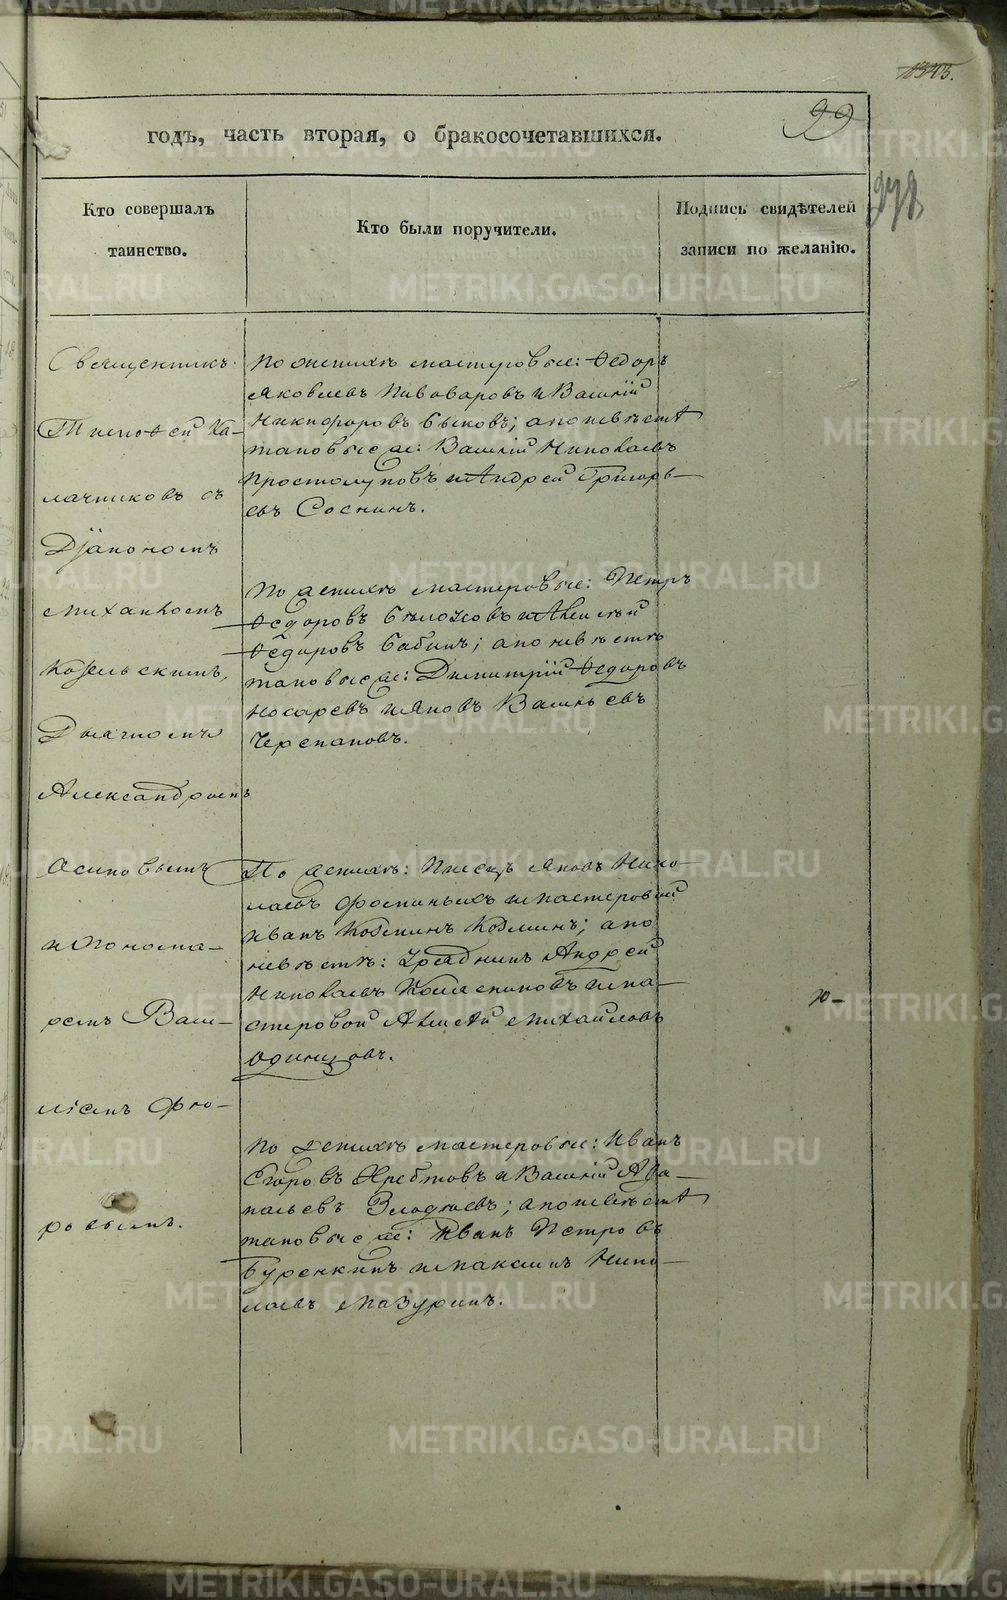 99
годъ, часть вторая, о бракосочетавшихся.
Кто совершалъ
таинство.
Кто были поручители.
Подпись свидѣтелей
записи по желанію.
Священникъ
Тимоѳей Ка-
лачниковъ съ
Діакономъ
Михаиломъ
Козельскимъ,
Дьячкомъ
Александромъ
Осиповымъ
и Понома-
ремъ Васи-
ліемъ Фло-
ровымъ.
По женихѣ мастеровые: Ѳедоръ
Яковлевъ Пивоваровъ и Василій
Никифоровъ Быковъ; а по невѣстѣ
таковые же: Василій Николаевъ
Простолуповъ и Андрей Григорь-
евъ Соснинъ.
По женихѣ мастеровые: Петръ
Ѳедоровъ Бѣлоусовъ и Алексѣй
Ѳедоровъ Бабинъ; а по невѣстѣ
таковые же: Димитрій Ѳедоровъ
Носаревъ и Яковъ Васильевъ
Черепановъ.
По женихѣ: Писецъ Яковъ Нико-
лаевъ Фоминыхъ и мастеровой
Иванъ Козминъ Козминъ; а по
невѣстѣ: Урядникъ Андрей
Николаевъ Колясниковъ и ма-
стеровой Алексѣй Михайловъ
Одинцовъ.
По женихѣ мастеровые: Иванъ
Егоровъ Хребтовъ и Василій Аѳа-
насьевъ Злодѣевъ; а по невѣстѣ
таковые же: Иванъ Петровъ
Буренкинъ и Максимъ Нико-
лаевъ Мазуринъ.
METRIKI.GASO-URAL.RU